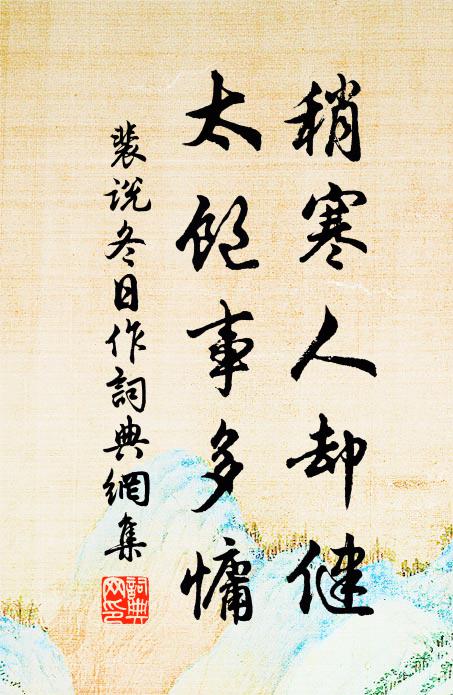 稍寒人却健
太飽事多慵
裴说冬日作詞典網集
詞典